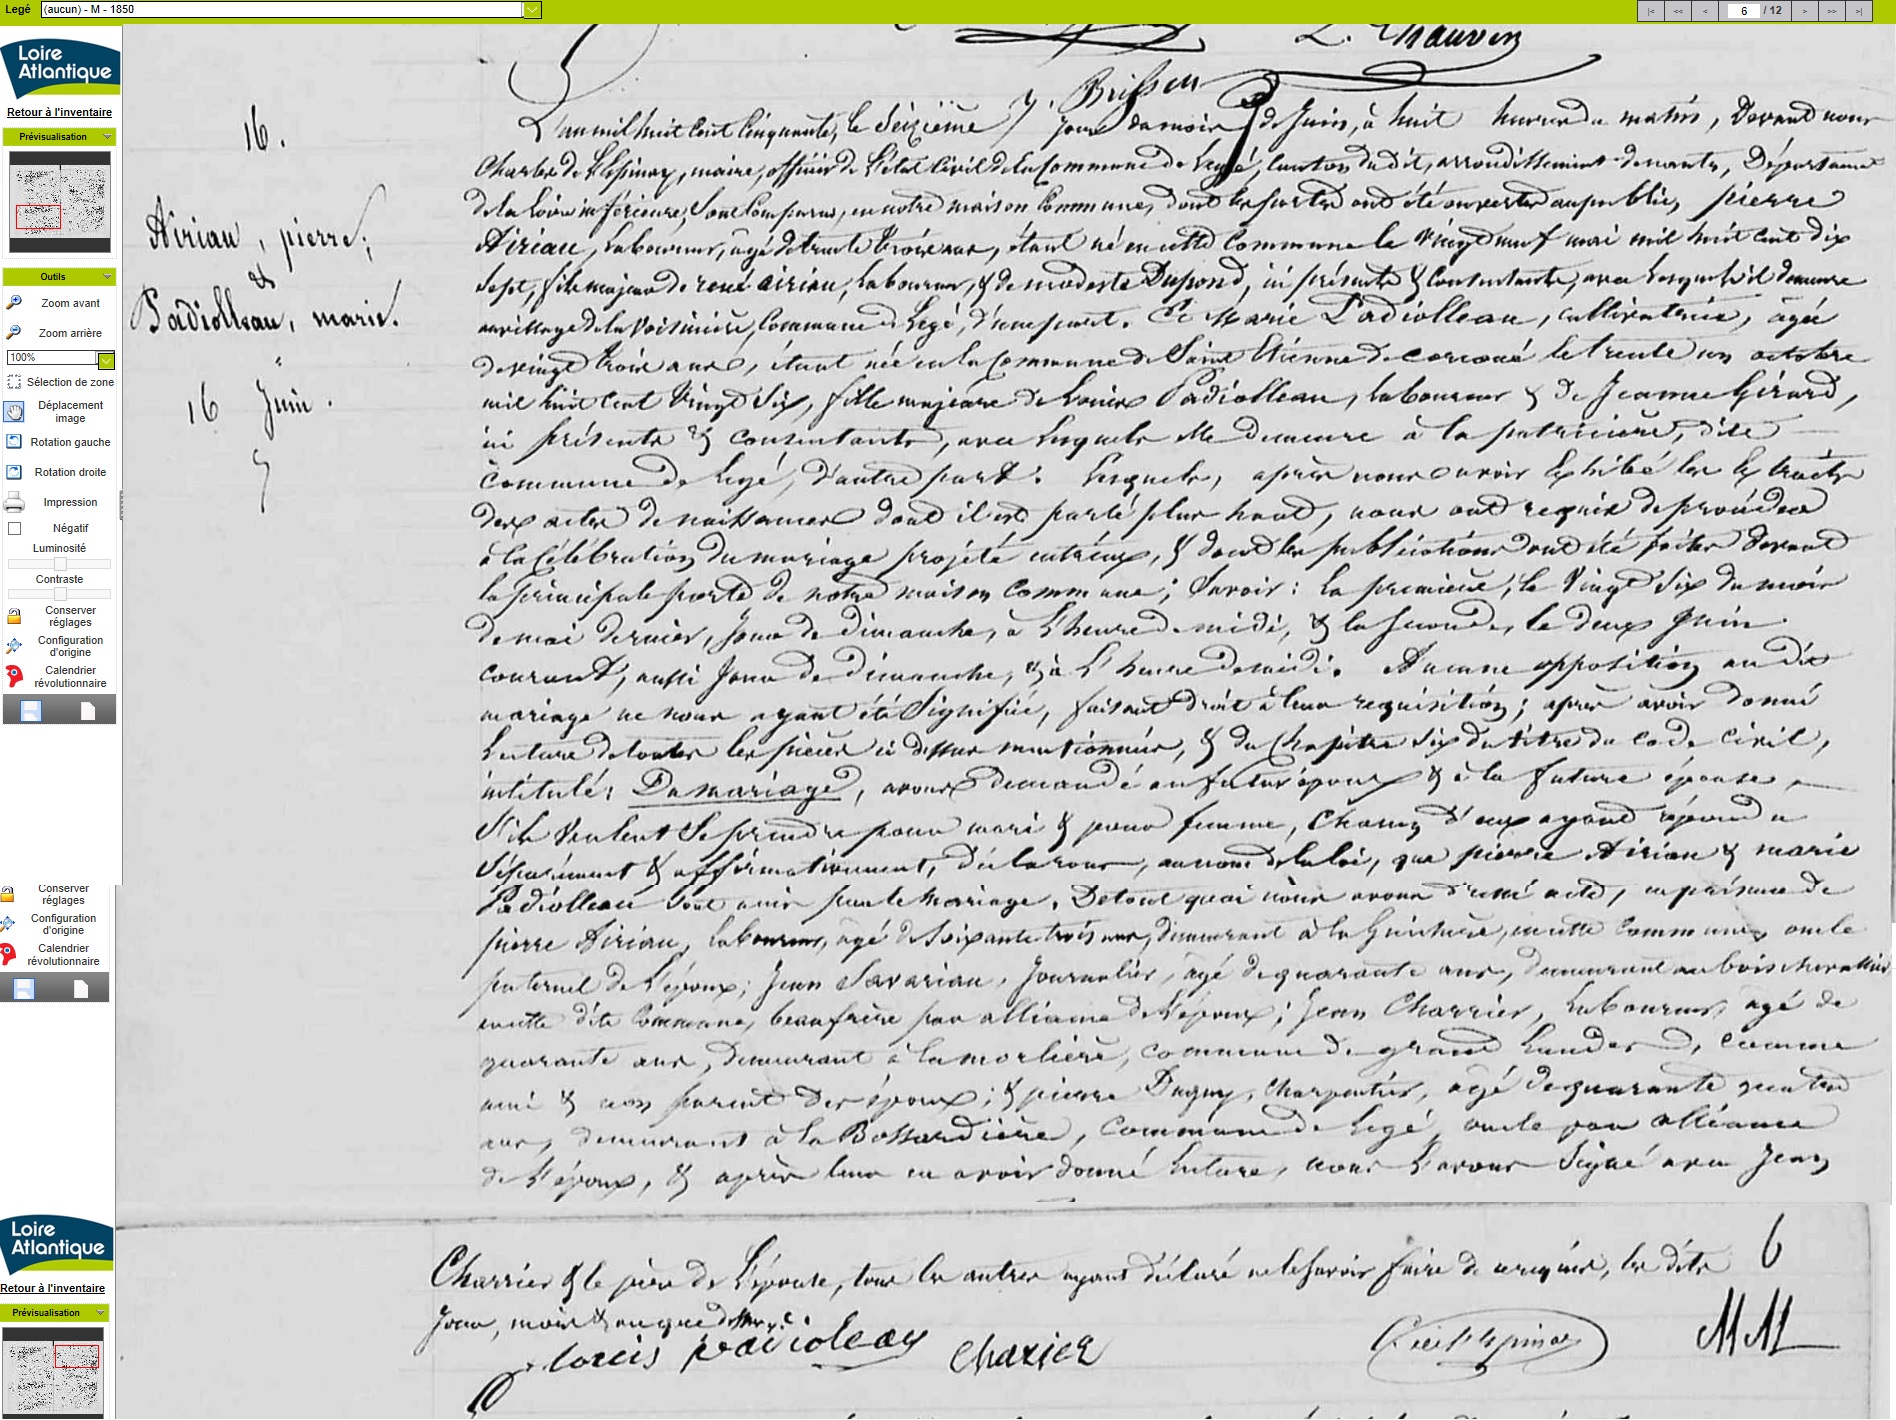 Legé
(aucun) - M - 1850
6 / 12
Loire
Atlantique
Retour à l'inventaire
Prévisualisation
Outils
Zoom avant
Zoom arrière
100%
Sélection de zone
Déplacement
image
Rotation gauche
Rotation droite
Impression
Négatif
Luminosité
Contraste
Conserver
réglages
Configuration
d'origine
Calendrier
révolutionnaire
Conserver
réglages
Configuration
d'origine
Calendrier
révolutionnaire
Loire
Atlantique
Retour à l'inventaire
Prévisualisation
L. Chauvin
Brisson
16.
Airiau, pierre;
&
Padiolleau, marie.
16 Juin.
L'an mil huit cent cinquante, le Seizième jour du mois de Juin, à huit heures du matin, Devant nous
Charles de L'Espinay, maire, officier de l'état civil de la Commune de Legé, canton du dit, arrondissement de nantes, Département
de la Loire inférieure, Sont Comparus, en notre maison Commune, dont les portes ont été ouvertes au public, pierre
Airiau, laboureur, âgé de trente trois ans, étant né en cette Commune le Vingt neuf mai mil huit cent dix
Sept, fils majeur de rené airiau, laboureur, & de modeste Dupond, ici présents & Consentants, avec lesquels il demeure
au village de la Voisinière, Commune de Legé, d'une part. Et Marie Padiolleau, cultivatrice, âgée
de vingt trois ans, étant née en la Commune de Saint Etienne de corcoué le trente un octobre
mil huit cent Vingt Six, fille majeure de Louis Padiolleau, laboureur & de Jeanne Girard,
ici présents & consentants, avec lesquels elle demeure à la patricière, dite
commune de Legé, d'autre part. Lesquels, après nous avoir Exhibé les Extraits
des actes de naissances dont il est parlé plus haut, nous ont requis de procéder
à la Célébration du mariage projeté entr'eux, & dont les publications ont été faites devant
la principale porte de notre maison commune; Savoir: la première, le Vingt Six du mois
de mai dernier, Jour de dimanche, à l'heure de midi, & la seconde, le deux Juin
courant, aussi Jour de dimanche, & à l'heure de midi. Aucune opposition au dit
mariage ne nous ayant été Signifiée, faisant droit à leur requisition; après avoir donné
lecture de toutes les pièces ci dessus mentionnées, & du Chapitre Six du titre du code civil,
intitulé: Du mariage, avons demandé au futur époux & à la future épouse,
S'ils Veulent Se prendre pour mari & pour femme, Chacun d'eux ayant répondu
Séparément & affirmativement, déclarons, au nom de la loi, que pierre Airiau & marie
Padiolleau Sont unis par le Mariage. De tout quoi nous avons dressé acte, en présence de
pierre Airiau, laboureur, âgé de Soixante trois ans, demeurant à la, en cette Commune, oncle
paternel de l'époux; Jean Savariau, Journalier, âgé de quarante ans, demeurant au bois chevalier
en cette dite Commune, beaufrère par alliance de l'époux; Jean Charrier, laboureur, âgé de
quarante ans, demeurant à la morlière, commune de grand'Landes, comme
ami & non parent des époux; & pierre Duguy, Charpentier, âgé de quarante quatre
ans, demeurant à la Bossardière, Commune de Legé, oncle par alliance
de l'époux, & après leur en avoir donné lecture, nous l'avons Signé avec Jean
6
Charrier & le père de l'épouse, tous les autres ayant déclaré ne le savoir faire de ce requis, les dits
Jour, mois & an que dessus.
louis padioleau
Charier